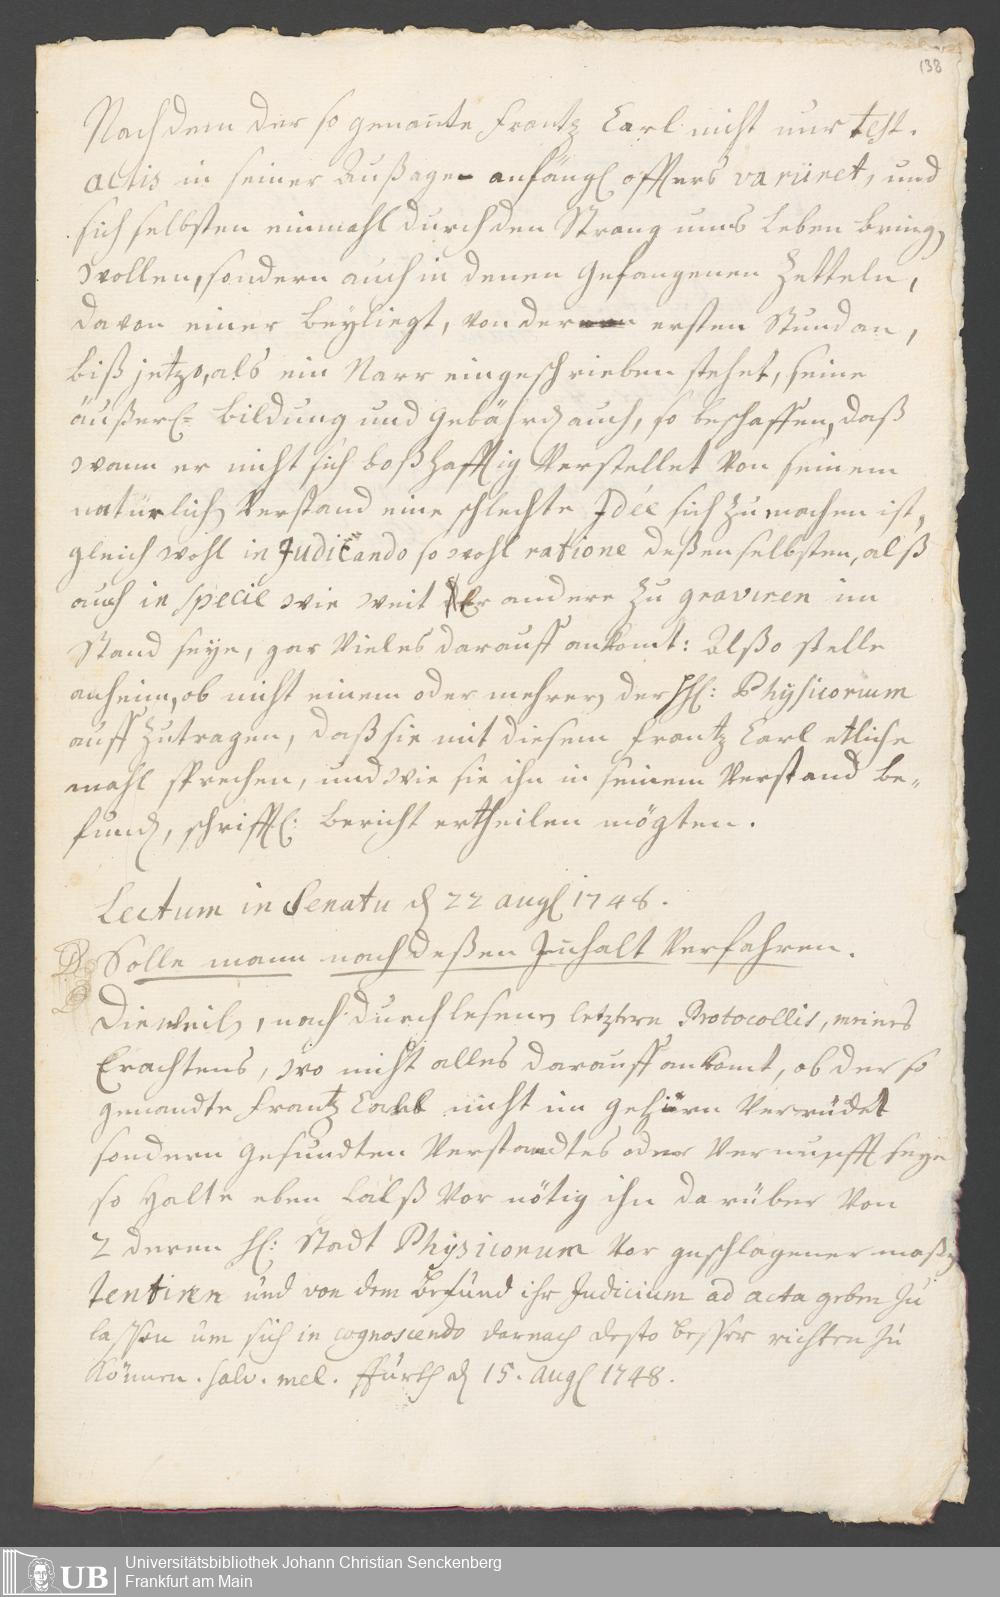 138
Nachdem der so genante Frantz Carl nicht nur test.
actis in seiner Außage anfängl öffters variiret, und
sich selbsten einmahl durch den Strang ums Leben bringen
wollen, sondern auch in denen Gefangenen Zetteln,
davon einer beyliegt, von der ersten Stund an,
biß jetzo, als ein Narr eingeschrieben stehet, seine
äußerl Bildung und Gebährden auch, so beschaffen, daß
wann er nicht sich boßhafftig verstellet von seinem
natürlichen Verstand eine schlechte Idée sich zu machen ist,
gleich wohl in Judicando so wohl ratione deßen selbsten, alß
auch in specie wie weit Er andere zu graviren im
Stand seye, gar vieles darauff ankomt: Alßo stelle
anheim, ob nicht einem oder mehrern der HH: Physicorum
auff zutragen, daß sie mit diesem Frantz Carl etliche
mahl sprechen, und wie sie ihn in seinem Verstand be-
funden, schrifftl: Bericht ertheilen mögten.
Lectum in Senatu d 22 Augl 1748.
Solle mann nach deßen Inhalt verfahren.
Dieweilen, nach durchlesenen letztern Protocollis, meines
Erachtens, wo nicht alles darauff ankomt, ob der so
genandte Frantz Carl nicht im Gehiern verrückt
sondern gesundten Verstandtes oder Vernunfft seye
so halte eben falß vor nötig ihn darüber von
2 deren H: Stadt Physicorum vor geschlagener maßen
tentiren und von dem Befund ihr Judicium ad acta geben zu
lassen um sich in cognoscendo darnach desto besser richten zu
können. salv. mel. ffurth d 15. Augl 1748.
UB
Universitätsbibliothek Johann Christian Senckenberg
Frankfurt am Main